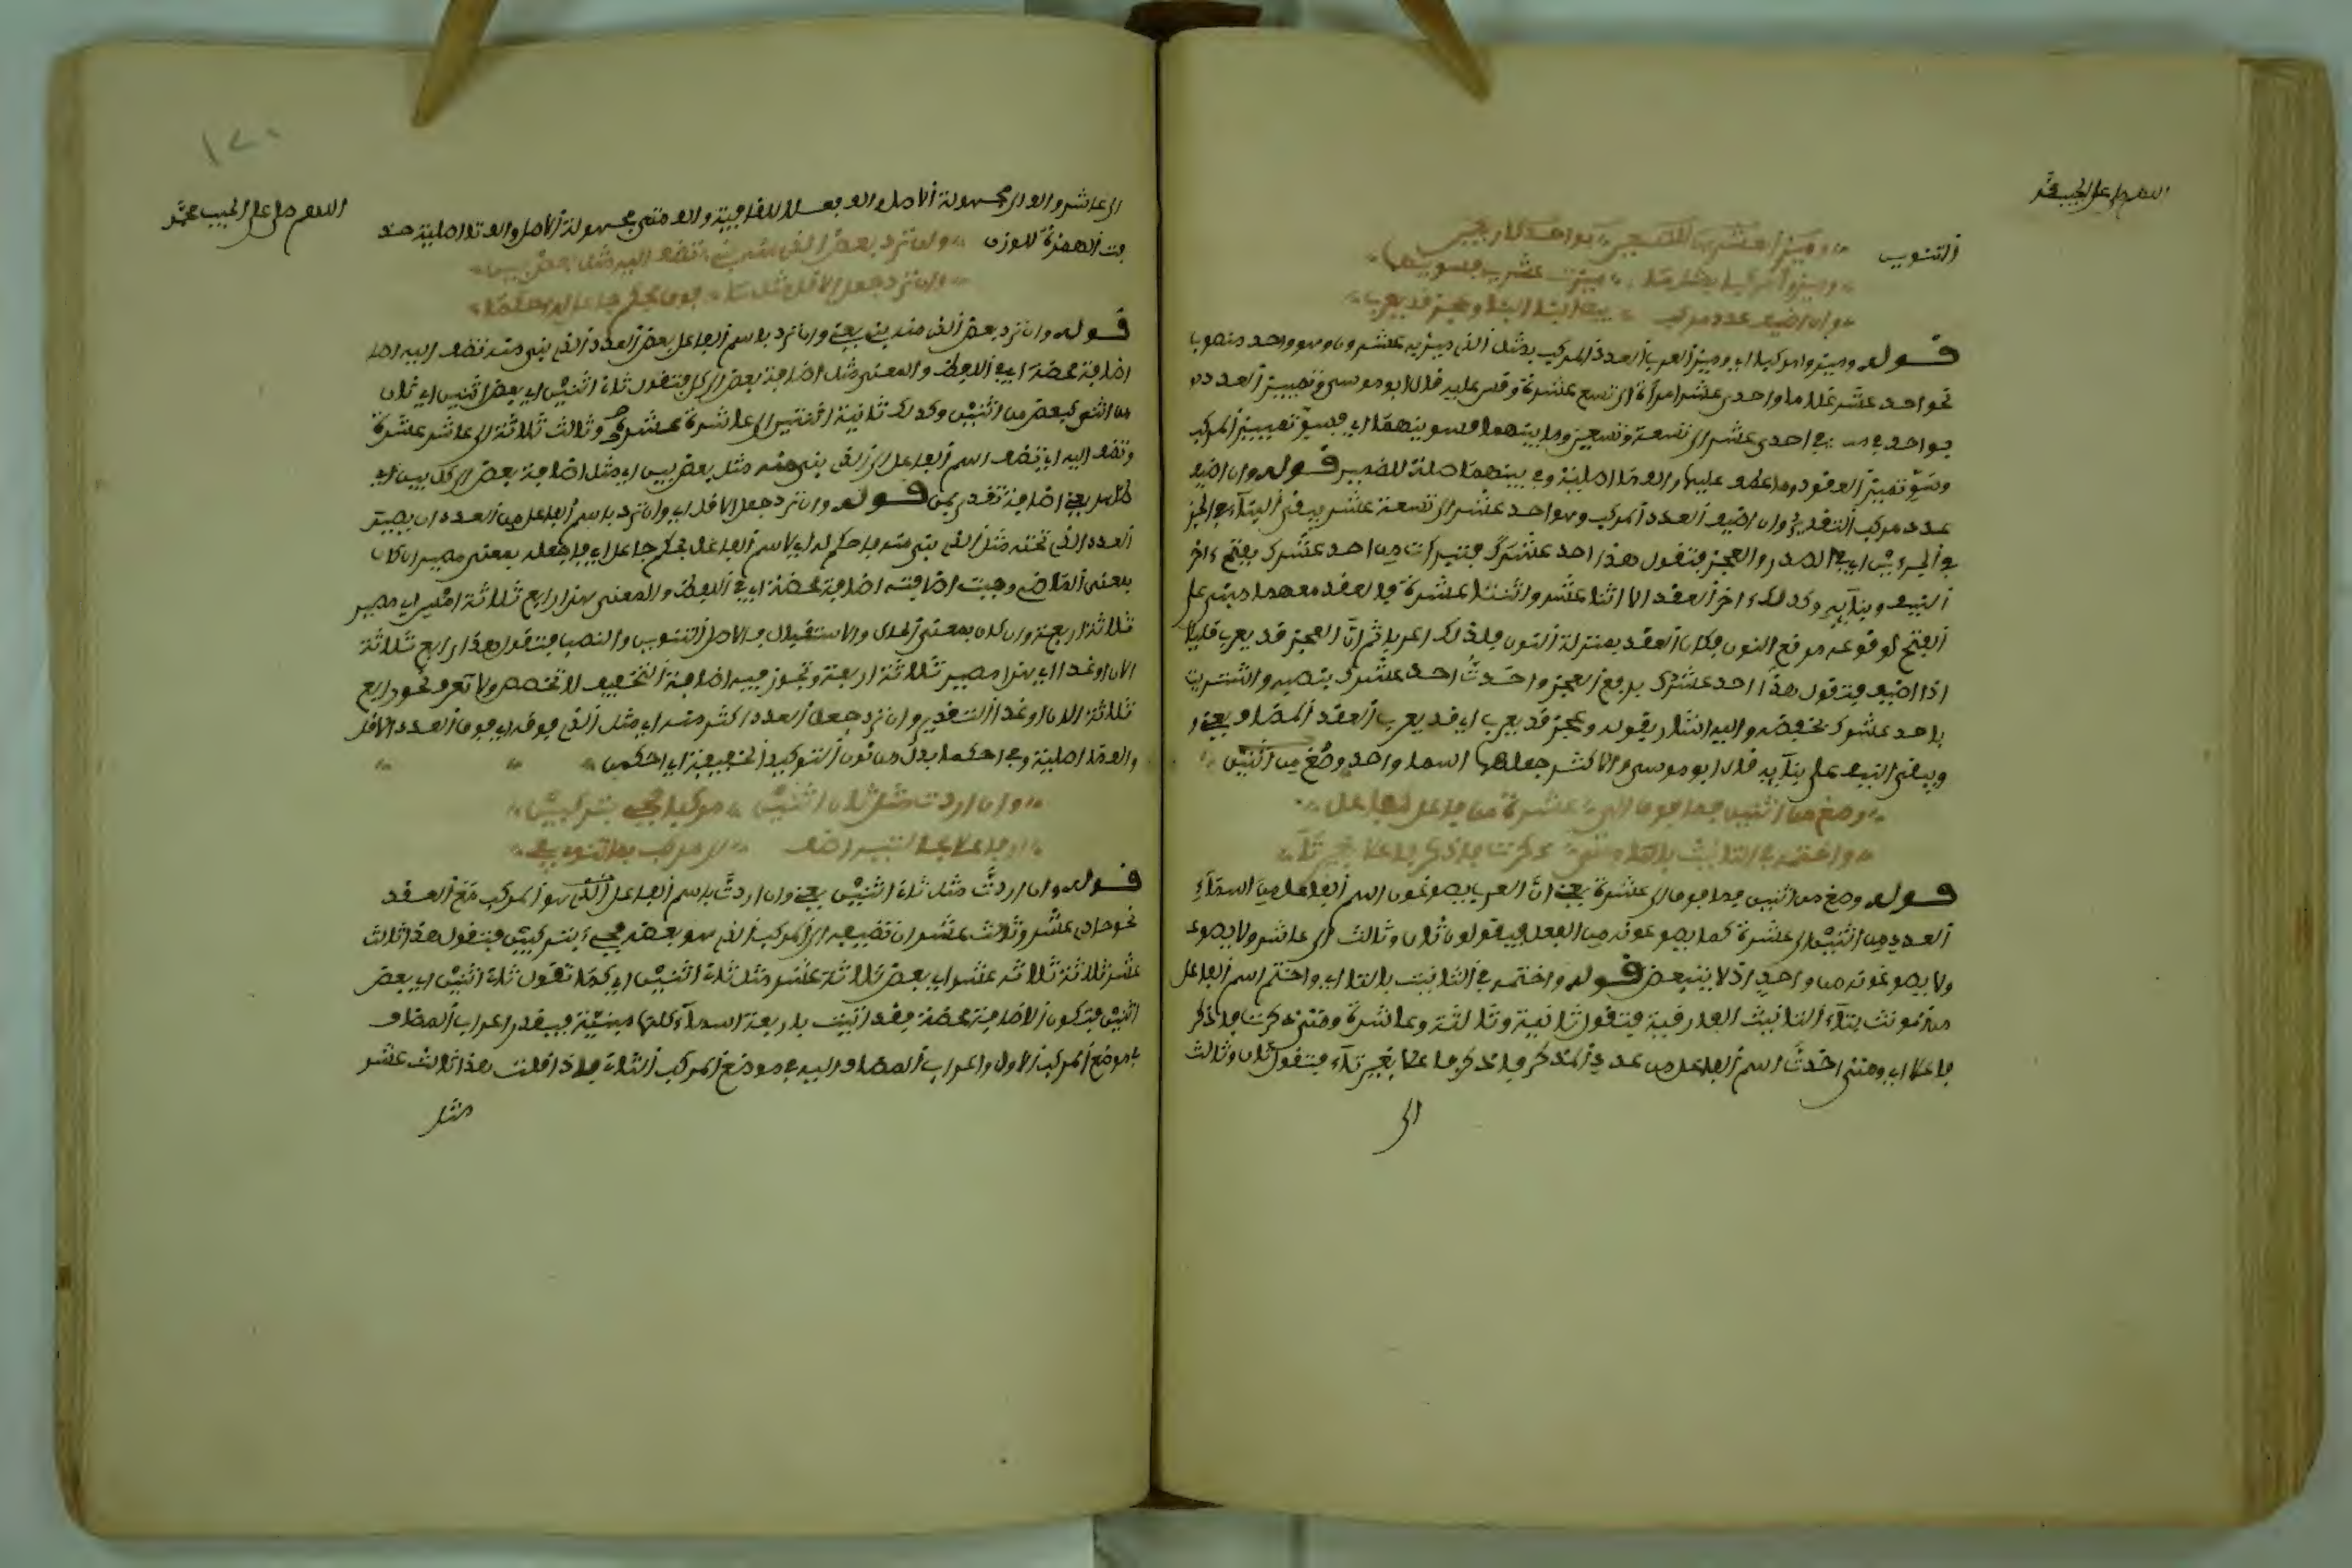 اللهم صل على الحبيب محمد
التنوين
وميز العشرين للتسعين بواحد كأربعين
وميزوا مركبا بمثل ما ميز عشرون فسوينهما
وان اضيف عدد مركب يبقى البنا وعجز قد يعرب
قوله وميزوا مركبا اي وميز العرب العدد المركب بمثل الذي ميز به عشرون وهو واحد منصوب
نحو احد عشر غلاما واحدى عشر امرأة الى تسع عشرة وقس عليه قال ابو موسى وتمييز العدد
احدى عشر الى تسعة وتسعين وما بينهما فسوينهما اي فسو تمييز المركب
وسو تمييز العقود وما عطف عليها والف ما اصلية وفي بينهما صلة للضمير قوله وان اضيف
عدد مركب التقدير وان اضيف العدد المركب وهو احد عشر الى تسعة عشر يبقى البناء في الجز
في الجزءين اي في الصدر والعجز فتقول هذا احد عشرك من احد عشرك بفتح ءاخر
النيف وبنآيه وكذلك ءاخر العقد الا اثنا عشر واثنتا عشرة فالعقد معهما مبني على
الفتح لوقوعه موقع النون فكان العقد بمنزلة النون فلذلك اعربا ثم ان العجز قد يعرب قليلا
اذا اضيف فتقول هذا احد عشرك برفع العجز واخذت احد عشرك بنصبه واشتريت
باحد عشرك بخفضه واليه اشار بقوله وعجز قد يعرب اي قد يعرب العقد المضاف يعني
ويبقى النيف على بنآيه قال ابو موسى والاكثر جعلهما اسما واحد وصغ من اثنين
وصغ من اثنين فما فوق الى عشرة من فاعل كفاعل
واختمه في التانيث بالتا ومتى ذكرت فاذكر فاعلا بغير تا
قوله وصغ من اثنين فما فوق الى عشرة يعني ان العرب يصوغون اسم الفاعل من اسماء
العدد من اثنين الى عشرة كما يصوغونه من الفعل فيقولون ثان وثالث الى عاشر ولا يصوغ
ولا يصوغونه من واحد اذ لا يتبعض قوله واختمه في التانيث بالتا اي واختم اسم الفاعل
من مونث بتاء التانيث الفارقية فتقول ثانية وثالثة وعاشرة ومتى ذكرت فاذكر
فاعلا اي ومتى اخذت اسم الفاعل من عدد المذكر فاذكر فاعلا بغير تاء فتقول ثان وثالث
الى
١٧٠
اللهم صل على الحبيب محمد
الى عاشر والف الى مجهولة الاصل والف فعلا للقافية والف متى مجهولة الاصل والف تا اصلية حذ
فت الهمزة للوزن وان ترد بعض الذي منه بني تضف اليه مثل بعض بين
وان ترد جعل الاقل مثل ما فوق فحكم جاعل له احكما
قوله وان ترد بعض الذي منه بني يعني وان ترد باسم الفاعل بعض العدد الذي بني منه تضف اليه اضا
اضافة محضة اي في اللفظ والمعنى مثل اضافة بعض الى كل فتقول ثاني اثنين اي بعض اثنين اي ثان
من اثنين كبعض من اثنين وكذلك ثانية اثنتين الى عاشرة عشر وثالث ثلاثة الى عاشر عشرة
وتضف اليه اي تضف اسم الفاعل الى الذي بني منه مثل بعض بين اي مثل اضافة بعض الى كل بين اي
ظاهر يعني اضافة تقدر بمن قوله وان ترد جعل الاقل اي وان ترد باسم الفاعل من العدد ان يصير
العدد الذي تحته مثل الذي بني منه فاحكم له اي لاسم الفاعل بحكم جاعل اي فاجعله بمعنى مصير ان كان
بمعنى الماضي وجبت اضافته اضافة محضة اي في اللفظ والمعنى هذا رابع ثلاثة امس اي مصير
ثلاثة اربعة وان كان بمعنى الحال والاستقبال فالاصل التنوين والنصب فتقول هذا رابع ثلاثة
الان او غدا اي هذا مصير ثلاثة اربعة وتجوز فيه اضافة التخفيف لا تخصص ولا تعرف نحو رابع
ثلاثة الان او غدا التقدير وان ترد جعل العدد اكثر منه اي مثل الذي فوقه اي فوق العدد الاقل
والف ما اصلية وفي احكما بدل من نون التوكيد الخفيفة اي احكمن
وان اردت مثل ثاني اثنين مركبا فجي بتركيبين
او فاعلا بحالتيه اضف الى مركب بما تنوي يفي
قوله وان اردت مثل ثاني اثنين يعني وان اردت باسم الفاعل الذي هو المركب مع العقد
نحو حادي عشر وثالث عشر ان تضيفه الى المركب الذي هو بعضه فجيء بتركيبين فتقول هذا ثالث
عشر ثلاثة ثلاثة عشر اي بعض ثلاثة عشر مثل ثاني اثنين اي كما تقول ثاني اثنين اي بعض
اثنين فتكون الاضافة محضة فقد اتيت باربعة اسماء كلها مبنية فيقدر اعراب المضاف
في موضع المركب الاول واعراب المضاف اليه في موضع المركب الثاني فاذا قلت هذا ثالث عشر
مثل